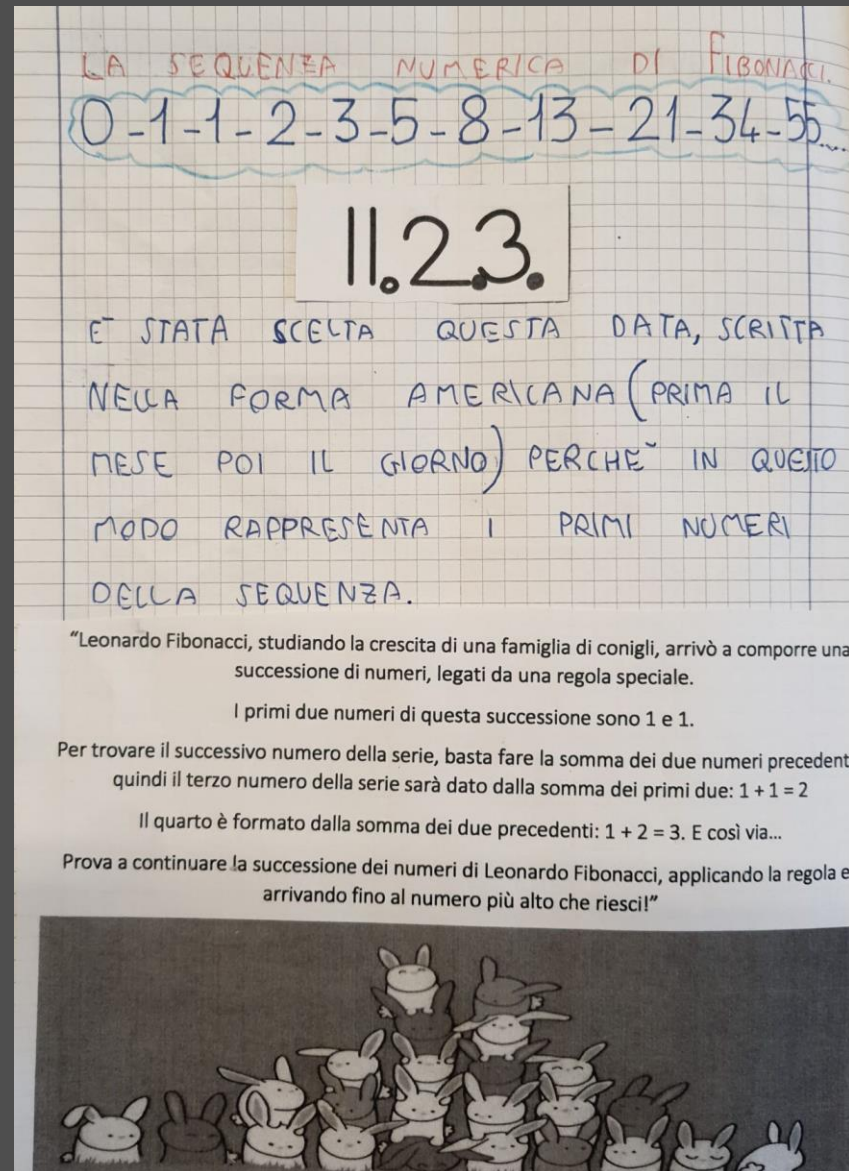 LA SEQUENZA NUMERICA DI FIBONACCI.
0-1-1-2-3-5-8-13-21-34-55...
11.2.3.
E' STATA SCELTA QUESTA DATA, SCRITTA
NELLA FORMA AMERICANA (PRIMA IL
MESE POI IL GIORNO) PERCHE' IN QUESTO
MODO RAPPRESENTA I PRIMI NUMERI
DELLA SEQUENZA.
"Leonardo Fibonacci, studiando la crescita di una famiglia di conigli, arrivò a comporre una
successione di numeri, legati da una regola speciale.
I primi due numeri di questa successione sono 1 e 1.
Per trovare il successivo numero della serie, basta fare la somma dei due numeri precedent
quindi il terzo numero della serie sarà dato dalla somma dei primi due: 1 + 1 = 2
Il quarto è formato dalla somma dei due precedenti: 1 + 2 = 3. E così via...
Prova a continuare la successione dei numeri di Leonardo Fibonacci, applicando la regola e
arrivando fino al numero più alto che riesci!"